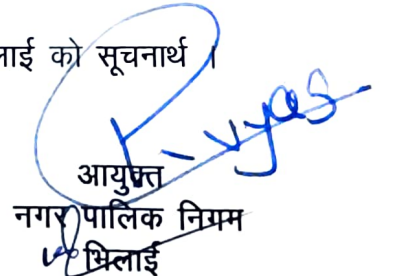 लाई को सूचनार्थ ।
R-vyas
आयुक्त
नगर पालिक निगम
भिलाई